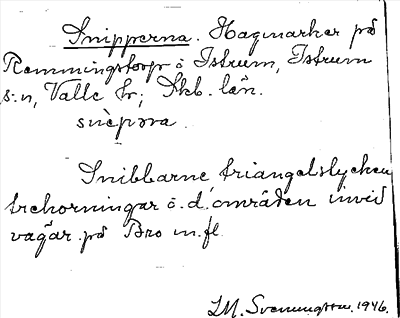 Snipperna. Hagmarker på
Remmingstorp o Istrum, Istrum
s:n, Valle hr; Skb. län.
snèpơra.
Snibbarne triangelstycken
trehorningar o. d. områden invid
vägar på Bro m. fl.
I.M. Svenungsson. 1946.